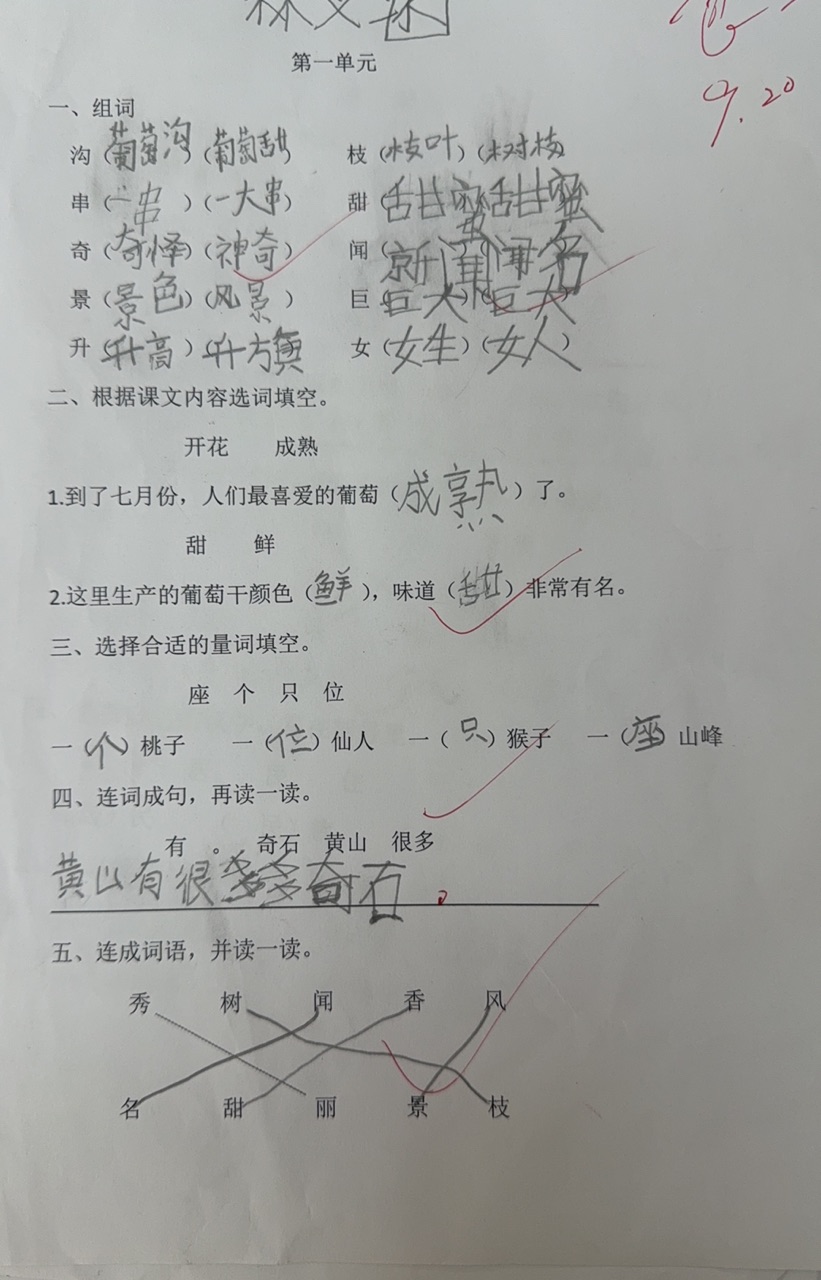 第一单元
9.20
一、组词
沟（葡萄沟）（葡萄甜） 枝（枝叶）（树枝）
串（一串）（一大串） 甜（甜蜜）（甜蜜）
奇（奇怪）（神奇） 闻（新闻）（闻名）
景（景色）（风景） 巨（巨大）（巨大）
升（升高）（升旗） 女（女生）（女人）
二、根据课文内容选词填空。
开花 成熟
1.到了七月份，人们最喜爱的葡萄（成熟）了。
甜 鲜
2.这里生产的葡萄干颜色（鲜），味道（甜）非常有名。
三、选择合适的量词填空。
座 个 只 位
一（个）桃子 一（位）仙人 一（只）猴子 一（座）山峰
四、连词成句，再读一读。
有 。 奇石 黄山 很多
黄山有很多奇石。
五、连成词语，并读一读。
秀 树 闻 香 风
名 甜 丽 景 枝